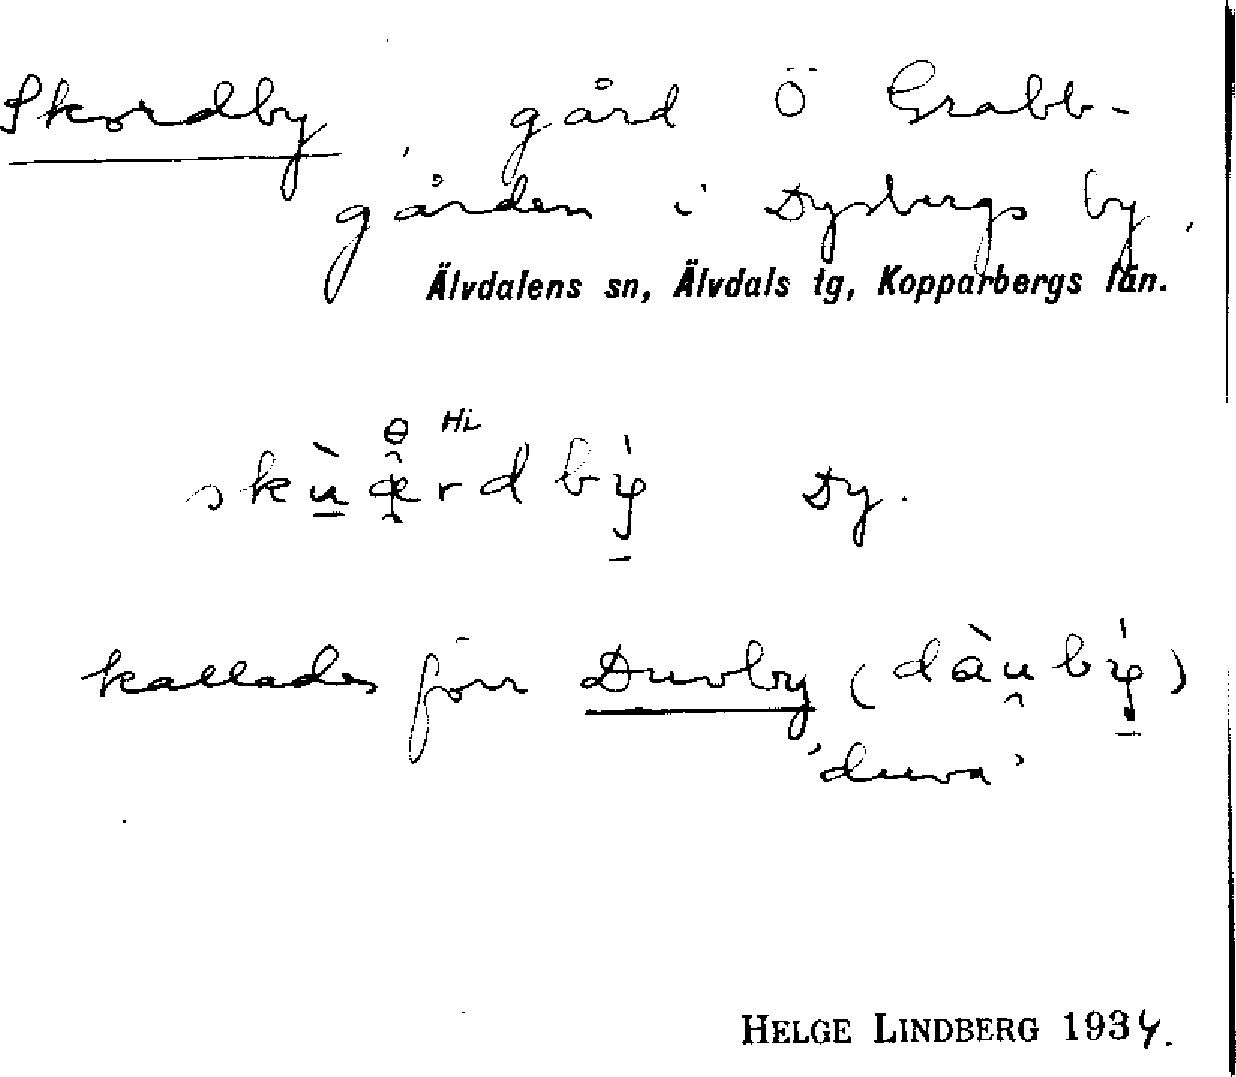 Skordby, gård Ö Grabb-
gården i Dysbergs by,
Älvdalens sn, Älvdals tg, Kopparbergs län.
Dy.
kallades förr Duvby (dàu̯bý)
'duva'
HELGE LINDBERG 1934.